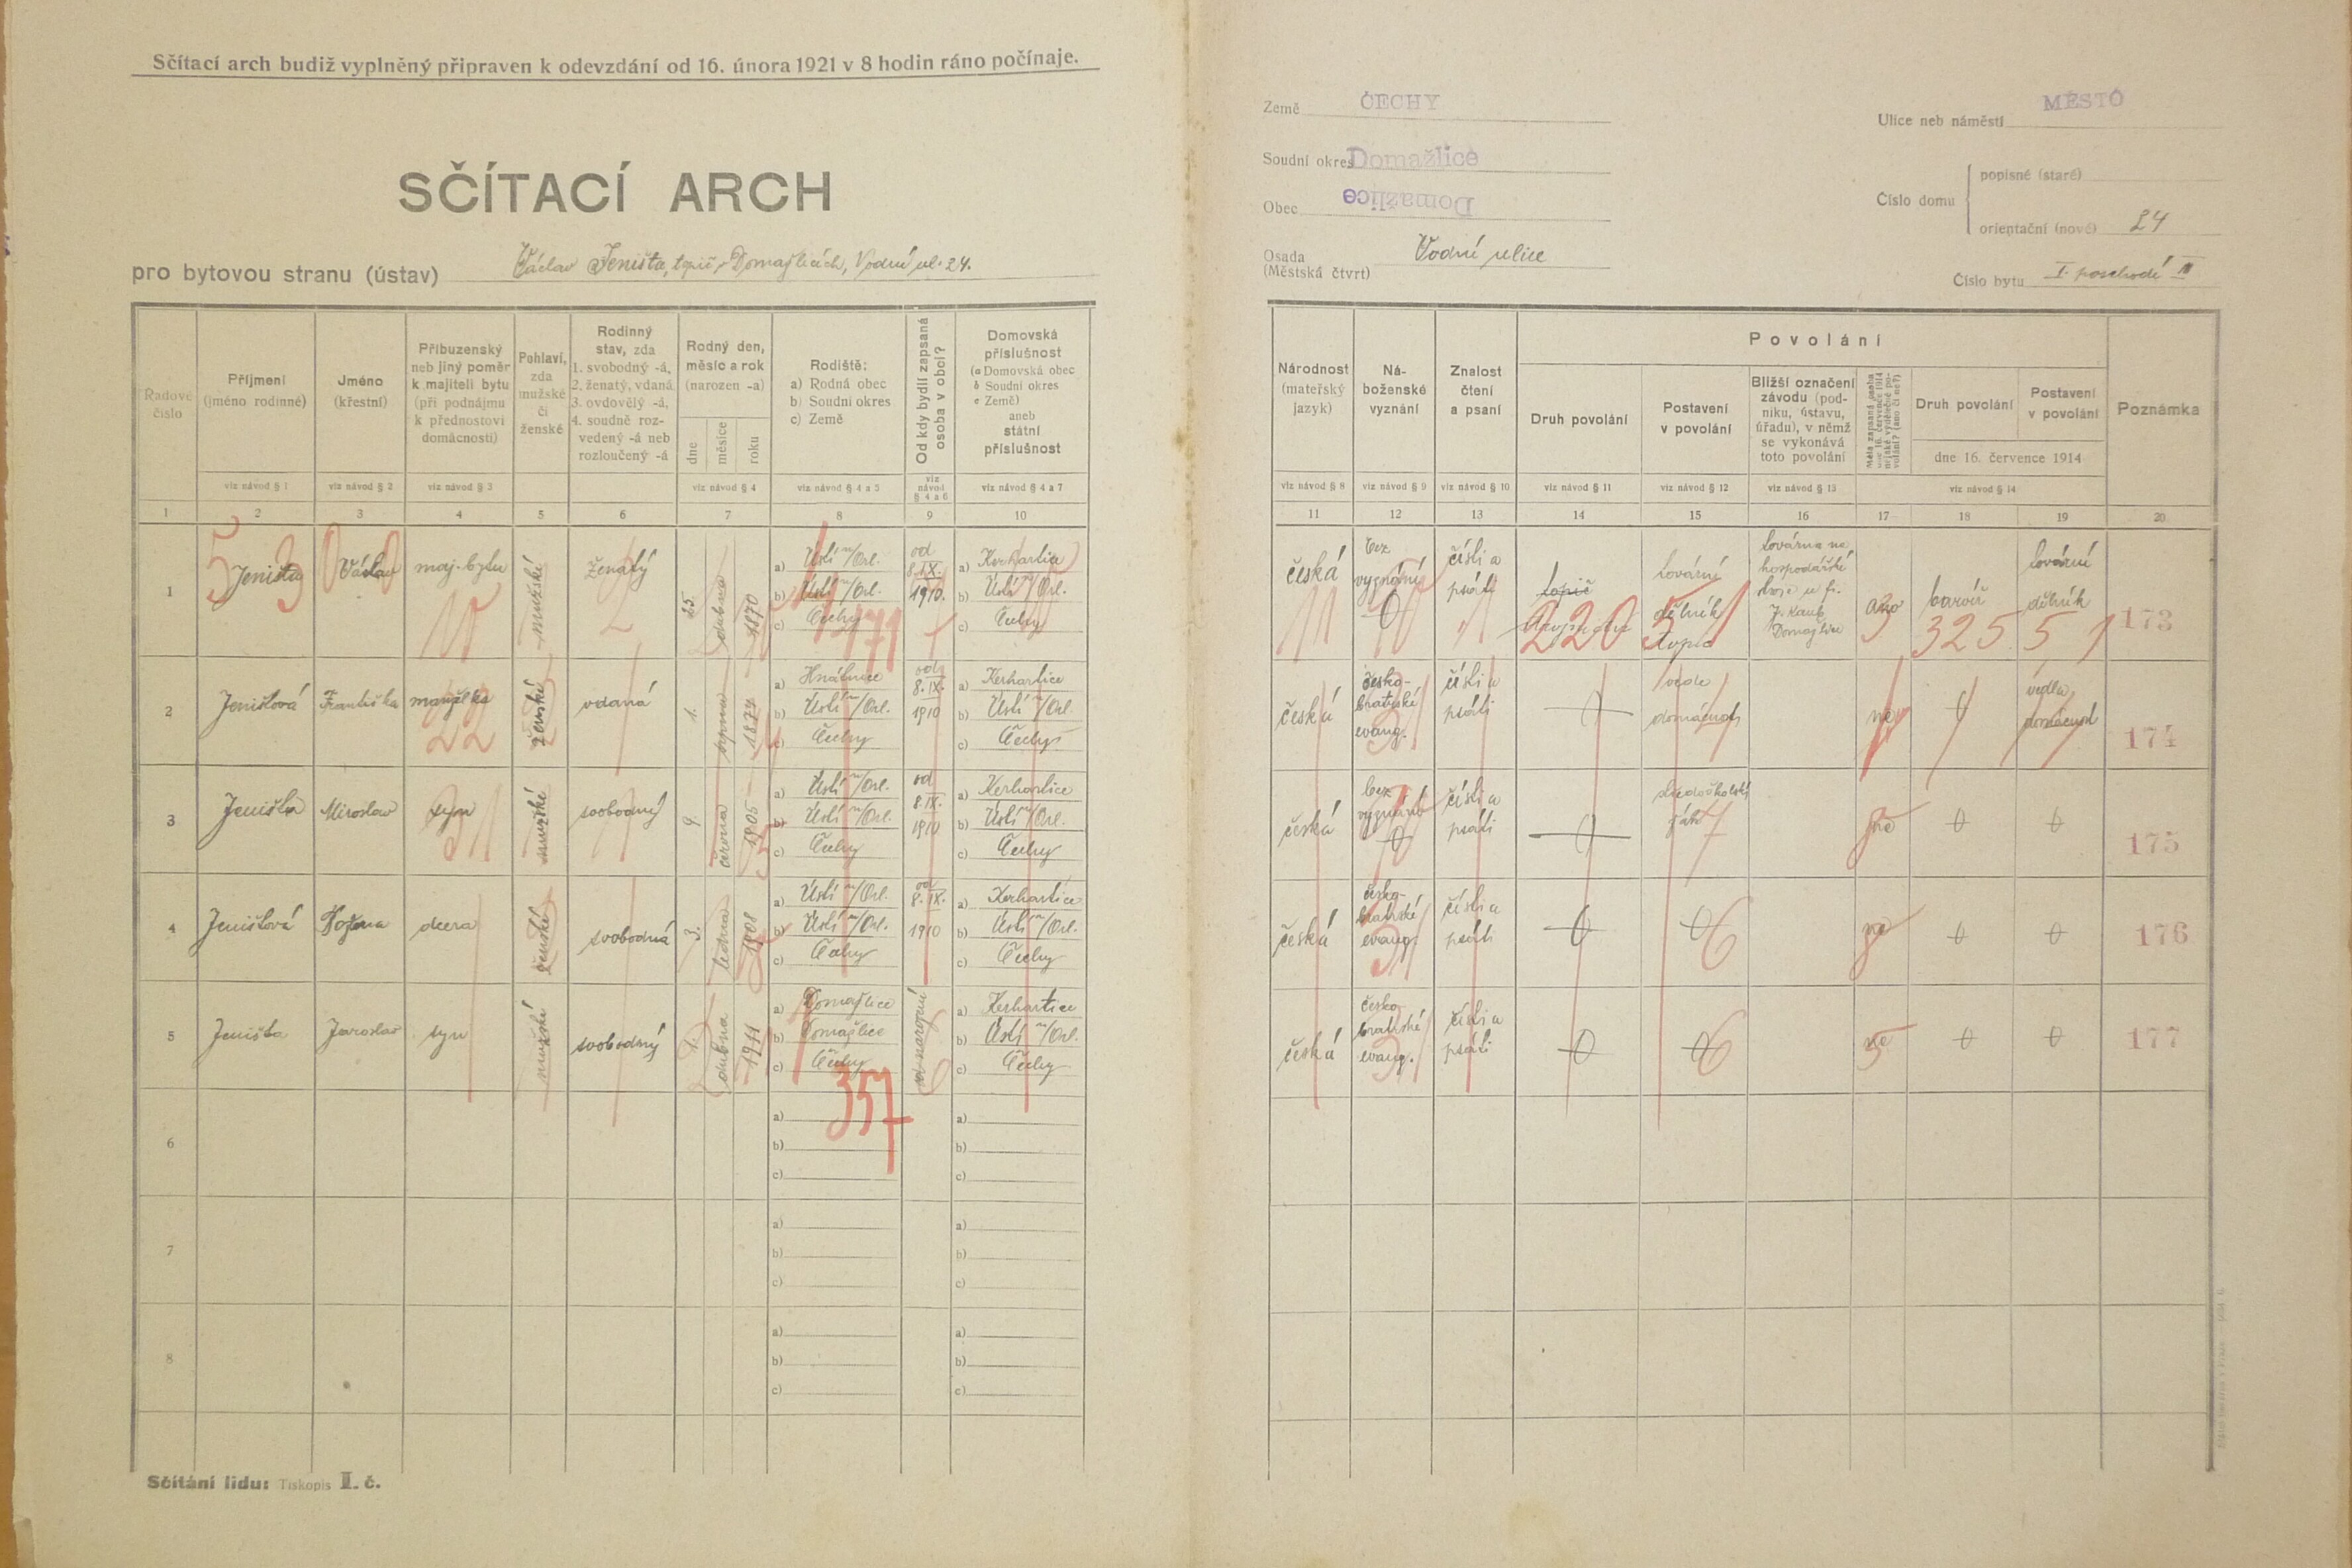 Sčítací arch budiž vyplněný připraven k odevzdání od 16. února 1921 v 8 hodin ráno počínaje.
SČÍTACÍ ARCH
pro bytovou stranu (ústav) Václav Jeništa, topič v Domažlicích, Vodní ul. 24.
Země ČECHY
Soudní okres Domažlice
Obec Domažlice
Osada (Městská čtvrt) Vodní ulice
Ulice neb náměstí MĚSTO
Číslo domu
popisné (staré)
orientační (nové) 24
Číslo bytu I. poschodí
Řadové číslo
Příjmení (jméno rodinné)
Jméno (křestní)
Příbuzenský neb jiný poměr k majiteli bytu (při podnájmu k přednostovi domácnosti)
Pohlaví, zda mužské či ženské
Rodinný stav, zda 1. svobodný -á, 2. ženatý, vdaná, 3. ovdovělý -á, 4. soudně rozvedený -á neb rozloučený -á
Rodný den, měsíc a rok (narozen -a)
dne měsíce roku
Rodiště: a) Rodná obec b) Soudní okres c) Země
Od kdy bydlí zapsaná osoba v obci?
Domovská příslušnost (a Domovská obec b Soudní okres c Země) aneb státní příslušnost
viz návod § 1 viz návod § 2 viz návod § 3 viz návod § 4 viz návod § 4 a 5 viz návod § 4 a 6 viz návod § 4 a 7
1 2 3 4 5 6 7 8 9 10
Národnost (mateřský jazyk)
Náboženské vyznání
Znalost čtení a psaní
Povolání
Druh povolání
Postavení v povolání
Bližší označení závodu (podniku, ústavu, úřadu), v němž se vykonává toto povolání
Druh povolání
Postavení v povolání
dne 16. července 1914
Poznámka
viz návod § 8 viz návod § 9 viz návod § 10 viz návod § 11 viz návod § 12 viz návod § 13 viz návod § 14
11 12 13 14 15 16 17 18 19 20
1 Jeništa Václav maj. bytu mužské ženatý 25. dubna 1870
a) Ústí n/Orl.
b) Ústí n/Orl.
c) Čechy
od 8. IX. 1910.
a) Kerhartice
b) Ústí n/Orl.
c) Čechy
česká bez vyznání 0 čísti a psáti topič tovární dělník
Domažlice
ano tovární dělník
220 51 325 5 1 173
2 Jeništová Františka manželka ženské vdaná 1. srpna
a) Hnátnice
b) Ústí n/Orl.
c) Čechy
od 8. IX. 1910
a) Kerhartice
b) Ústí n/Orl.
c) Čechy
česká česko-bratrské evang. čísti a psáti 0 vede domácnost ne 0 vedla domácnost 174
3 Jeništa Miroslav syn mužské svobodný 9. června 1905
a) Ústí n/Orl.
b) Ústí n/Orl.
c) Čechy
od 8. IX. 1910
a) Kerhartice
b) Ústí n/Orl.
c) Čechy
česká bez vyznání 0 čísti a psáti 0 středoškolský žák ne 0 0 175
4 Jeništová Božena dcera ženské svobodná 3. ledna 1908
a) Ústí n/Orl.
b) Ústí n/Orl.
c) Čechy
od 8. IX. 1910
a) Kerhartice
b) Ústí n/Orl.
c) Čechy
česká česko-bratrské evang. čísti a psáti 0 0 ne 0 0 176
5 Jeništa Jaroslav syn mužské svobodný dubna 1911
a) Domažlice
b) Domažlice
c) Čechy
od narození
a) Kerhartice
b) Ústí n/Orl.
c) Čechy
česká česko-bratrské evang. čísti a psáti 0 0 ne 0 0 177
357
6 a) b) c) a) b) c)
7 a) b) c) a) b) c)
8 a) b) c) a) b) c)
Sčítání lidu: Tiskopis II. č.